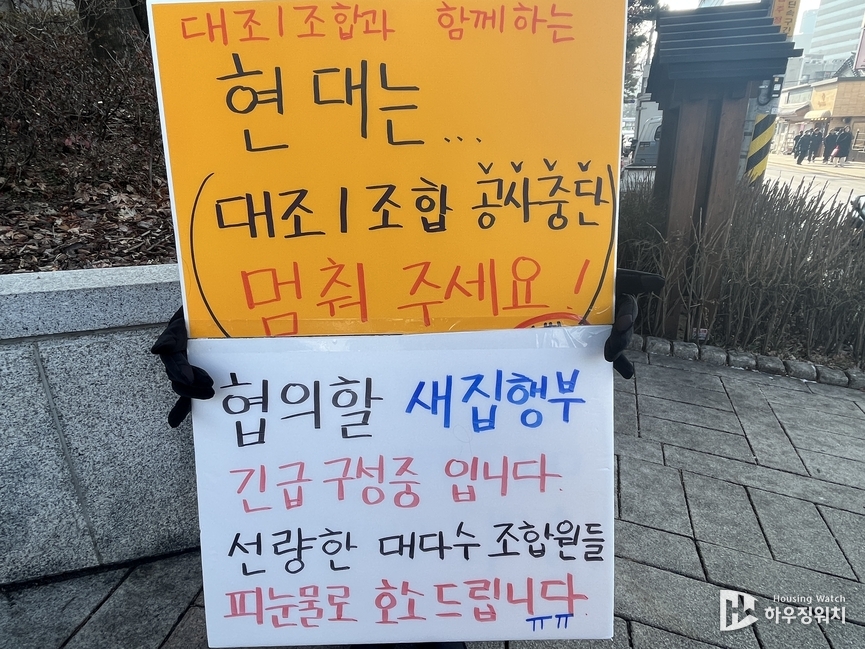 대조1조합과 함께하는
현대는...
(대조1조합 공사중단
멈춰 주세요!)
협의할 새집행부
긴급 구성중 입니다.
선량한 대다수 조합원들
피눈물로 호소드립니다.
ㅠㅠ
Housing Watch
하우징워치